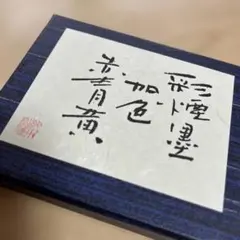 彩煙墨
加色
赤青黄